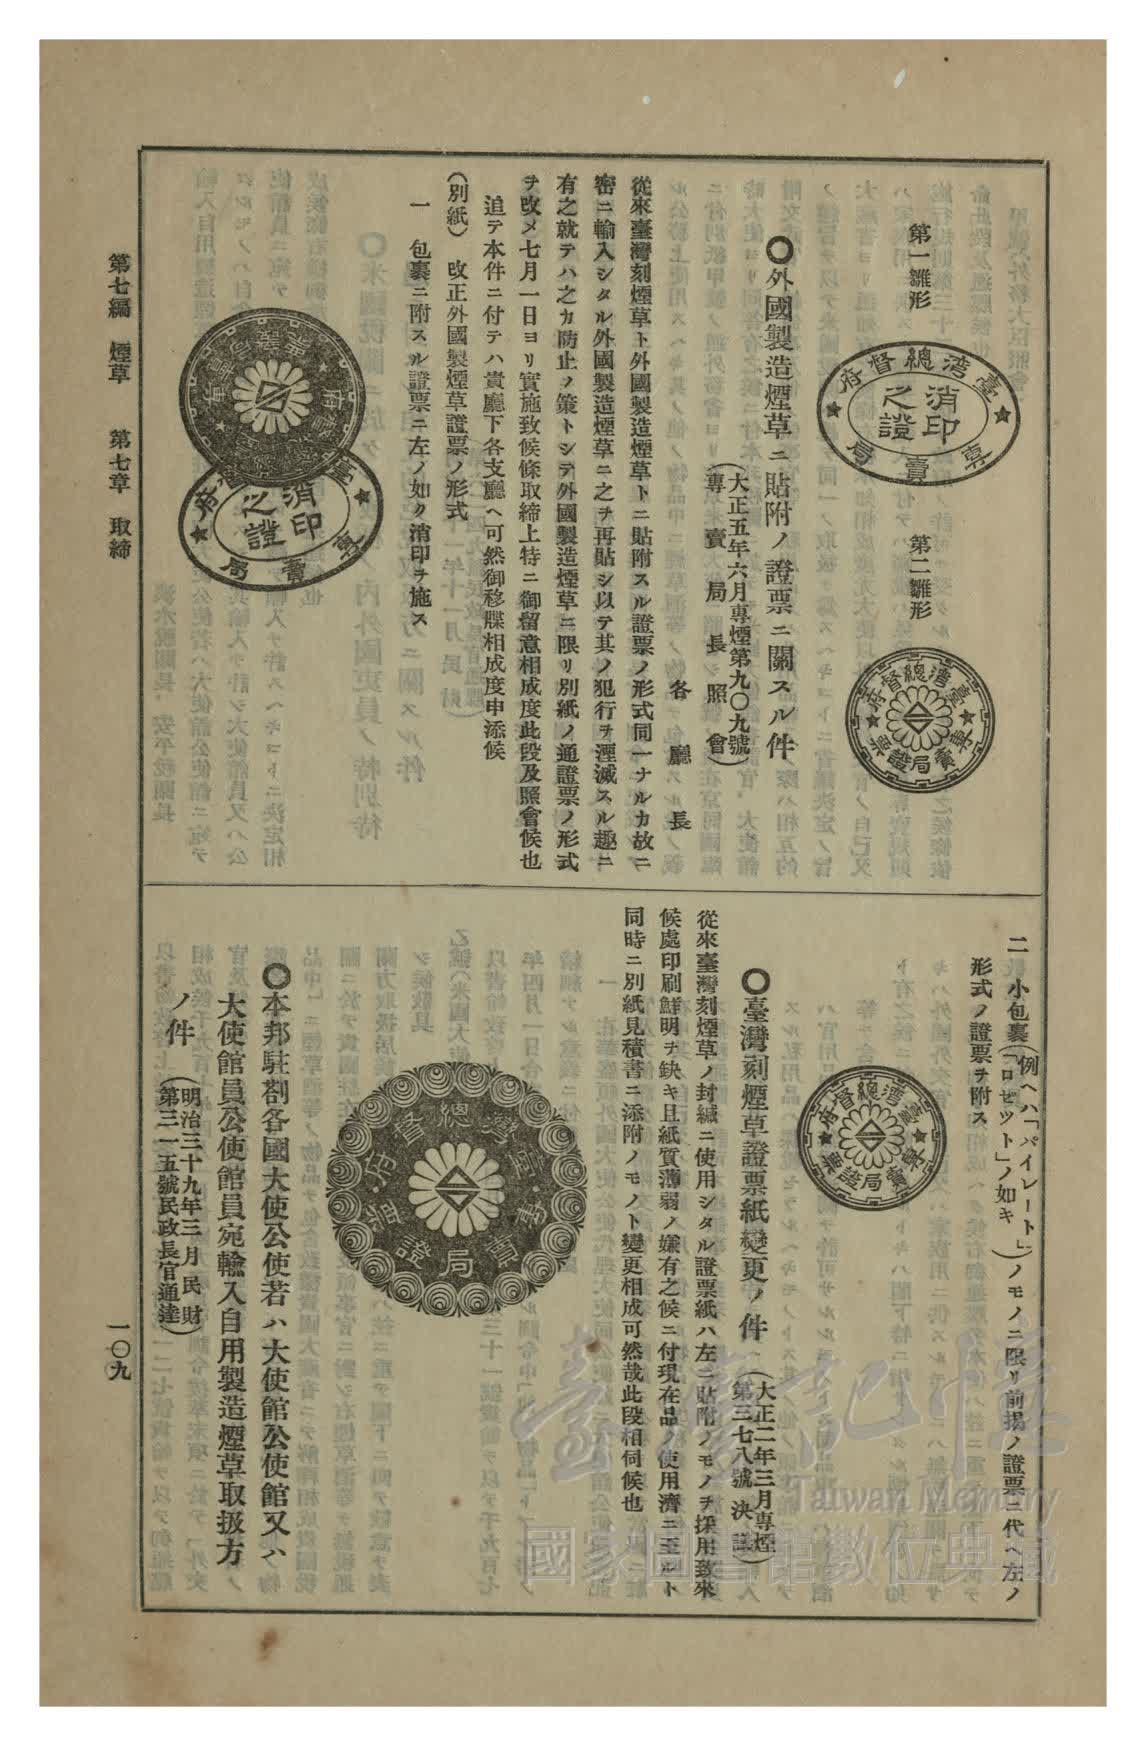 第一雛形
臺灣總督府
專賣局
消印之證
第二雛形
臺灣總督府
專賣局證票
〇外國製造煙草ニ貼附ノ證票ニ關スル件
(大正五年六月專煙第九〇九號)
(專賣局長照會)
各廳長
從來臺灣刻煙草ト外國製造煙草トニ貼附スル證票ノ形式同一ナルカ故ニ
密ニ輸入シタル外國製造煙草ニ之ヲ再貼シ以テ其ノ犯行ヲ湮滅スル趣ニ
有之就テハ之カ防止ノ策トシテ外國製造煙草ニ限リ別紙ノ通證票ノ形式
ヲ改メ七月一日ヨリ實施致候條取締上特ニ御留意相成度此段及照會候也
追テ本件ニ付テハ貴廳下各支廳ヘ可然御移牒相成度申添候
(別紙) 改正外國製煙草證票ノ形式
一 包裹ニ附スル證票ニ左ノ如ク消印ヲ施ス
消印之證
專賣局
第七編 煙草 第七章 取締
二 小包裹(例ヘハ「パイレート」「ロセツト」ノ如キ)ノモノニ限リ前揭ノ證票ニ代ヘ左ノ
形式ノ證票ヲ附ス
臺灣總督府
專賣局證票
〇臺灣刻煙草證票紙變更ノ件
(大正二年三月專煙第三七八號決議)
從來臺灣刻煙草ノ封緘ニ使用シタル證票紙ハ左ニ貼附ノモノヲ採用致來
候處印刷鮮明ヲ缺キ且紙質薄弱ノ嫌有之候ニ付現在品ノ使用濟ニ至ルト
同時ニ別紙見積書ニ添附ノモノト變更相成可然哉此段相伺候也
臺灣總督府
專賣局證票
〇本邦駐劄各國大使公使若ハ大使館公使館又ハ
大使館員公使館員宛輸入自用製造煙草取扱方
ノ件
(明治三十九年三月民財第三一五號民政長官通達)
一〇九
臺灣記憶
Taiwan Memory
國家圖書館數位典藏